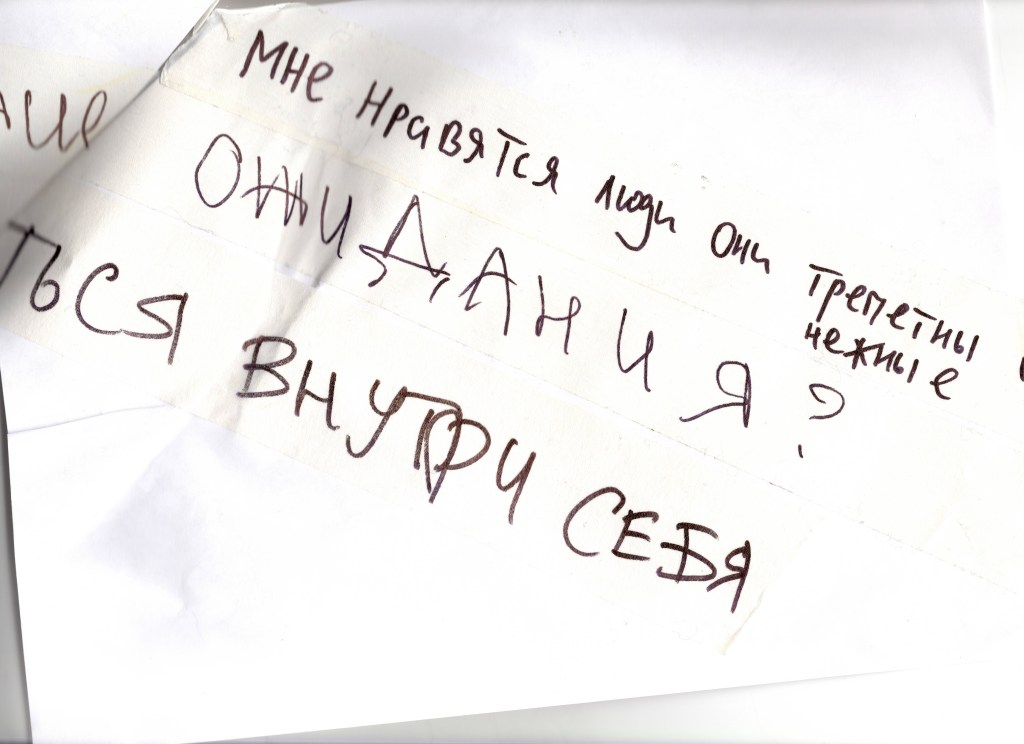 мне нравятся люди они трепетны
нежные
ОЖИДАНИЯ?
ТЬСЯ ВНУТРИ СЕБЯ